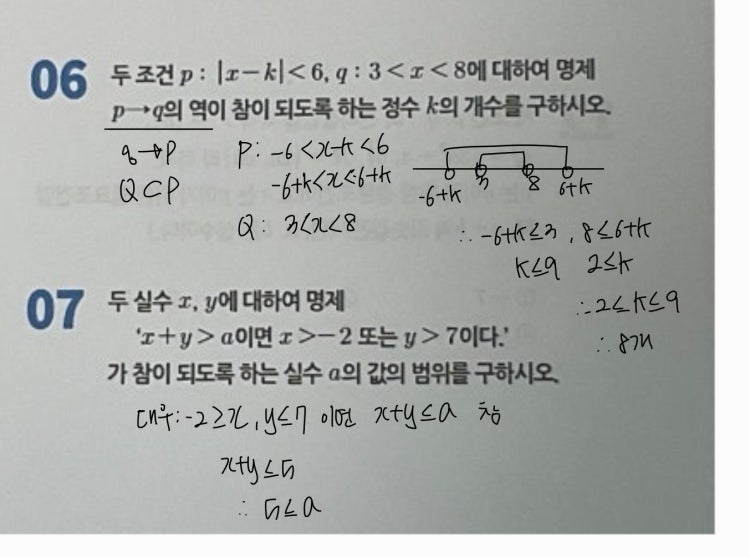 06 두 조건 p : |x-k|<6, q : 3<x<8에 대하여 명제
p→q의 역이 참이 되도록 하는 정수 k의 개수를 구하시오.
q→P
Q⊂P
P: -6<x-k<6
-6+k<x<6+k
Q: 3<x<8
-6+k 3 8 6+k
∴ -6+k≤3, 8≤6+k
k≤9 2≤k
∴ 2≤k≤9
∴ 8개
07 두 실수 x, y에 대하여 명제
'x+y>a이면 x>-2 또는 y>7이다.'
가 참이 되도록 하는 실수 a의 값의 범위를 구하시오.
대우: -2≥x, y≤7 이면 x+y≤a 참
x+y≤5
∴ 5≤a